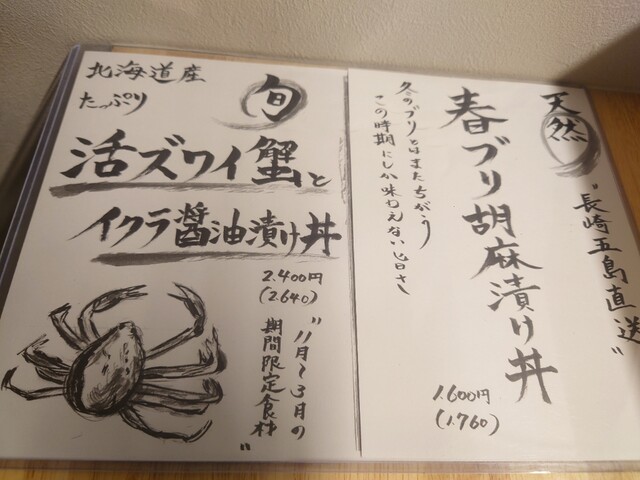 北海道産
たっぷり
旬
活ズワイ蟹と
イクラ醤油漬け丼
2.400円
(2.640)
"11月〜3月の
期間限定食材"
天然
春ブリ胡麻漬け丼
"長崎五島直送"
冬のブリとはまたちがう
この時期にしか味わえない旨さ
1.600円
(1.760)